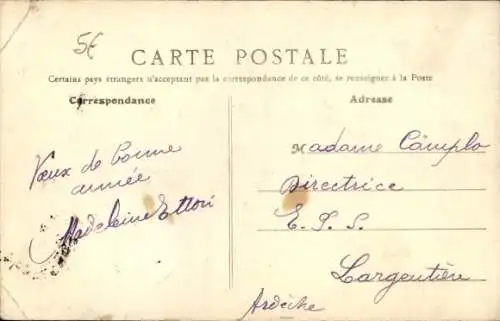 5€
CARTE POSTALE
Certains pays étrangers n'acceptant pas la correspondance de ce côté, se renseigner à la Poste
Correspondance
Adresse
Vœux de bonne
année
Madeleine Ettori
Madame Câmplo
Directrice
E. P. S.
Largentière
Ardèche